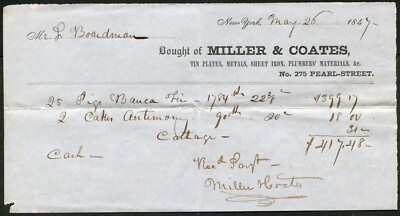 New York May 26 1847
Mr L Boardman
Bought of MILLER & COATES,
TIN PLATES, METALS, SHEET IRON, PLUMBERS' MATERIALS, &c.
No. 275 PEARL-STREET.
25 Pigs Banca Tin 1784 lb 22 3/8 c $399 17
2 Cakes Antimony 90 lb 20 c 18 00
Cartage 31
Cash $417.48
Rec'd Payt
Miller & Coates